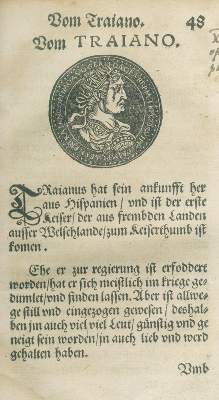 Vom Traiano. 48
Vom TRAIANO.
TRaianus hat sein ankunfft her
aus Hispanien/ vnd ist der erste
Keiser/ der aus frembden Landen
ausser Welschlande/ zum Keiserthumb ist
komen.
Ehe er zur regierung ist erfoddert
worden/ hat er sich meistlich im kriege ge-
dumlet/ vnd finden lassen. Aber ist allwe-
ge still vnd eingezogen gewesen/ deshal-
ben jm auch viel viel Leut/ günstig vnd ge
neigt sein worden/ jn auch lieb vnd werd
gehalten haben.
Vmb